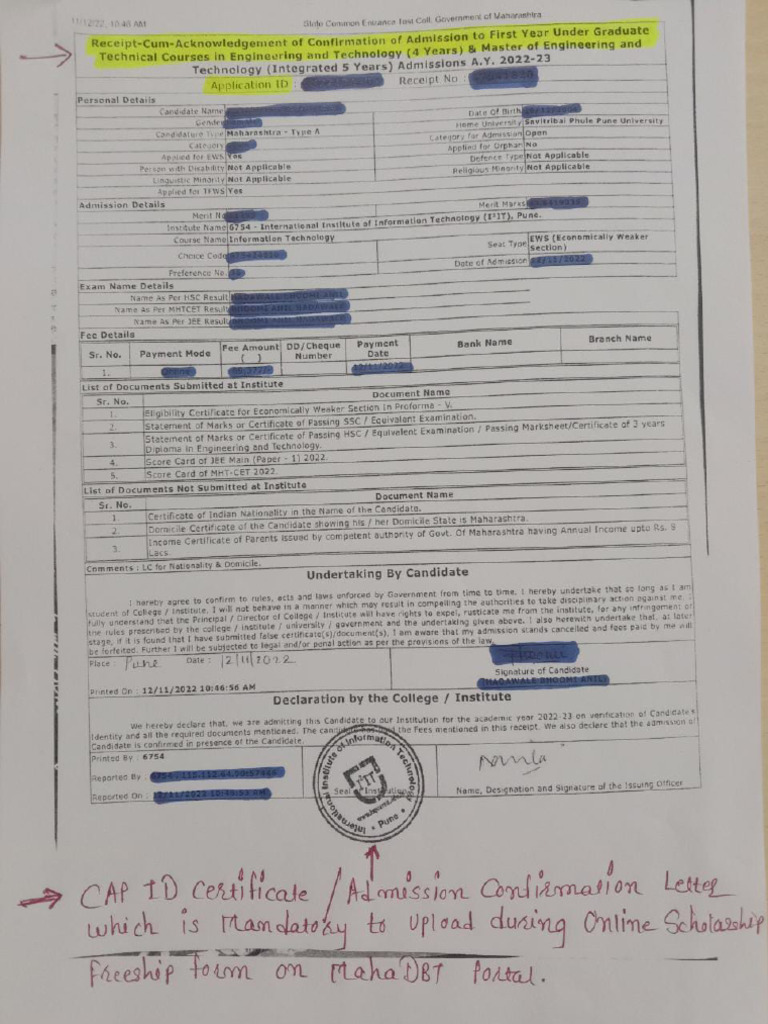 11/12/22, 10:48 AM State Common Entrance Test Cell, Government of Maharashtra
Receipt-Cum-Acknowledgement of Confirmation of Admission to First Year Under Graduate
Technical Courses in Engineering and Technology (4 Years) & Master of Engineering and
Technology (Integrated 5 Years) Admissions A.Y. 2022-23
Application ID : Receipt No :
Personal Details
Candidate Name
Gender Date Of Birth
Candidature Type Maharashtra - Type A Home University Savitribai Phule Pune University
Category Category for Admission Open
Applied for EWS Yes Applied for Orphan No
Person with Disability Not Applicable Defence Type Not Applicable
Linguistic Minority Not Applicable Religious Minority Not Applicable
Applied for TFWS Yes
Admission Details
Merit No Merit Marks
Institute Name 6754 - International Institute of Information Technology (I²IT), Pune.
Course Name Information Technology
Choice Code Seat Type EWS (Economically Weaker Section)
Preference No. Date of Admission
Exam Name Details
Name As Per HSC Result
Name As Per MHTCET Result
Name As Per JEE Result
Fee Details
Sr. No. Payment Mode Fee Amount ( ) DD/Cheque Number Payment Date Bank Name Branch Name
1.
List of Documents Submitted at Institute
Sr. No. Document Name
1. Eligibility Certificate for Economically Weaker Section in Proforma - V.
2. Statement of Marks or Certificate of Passing SSC / Equivalent Examination.
3. Statement of Marks or Certificate of Passing HSC / Equivalent Examination / Passing Marksheet/Certificate of 3 years
Diploma in Engineering and Technology.
4. Score Card of JEE Main (Paper - 1) 2022.
5. Score Card of MHT-CET 2022.
List of Documents Not Submitted at Institute
Sr. No. Document Name
1. Certificate of Indian Nationality in the Name of the Candidate.
2. Domicile Certificate of the Candidate showing his / her Domicile State is Maharashtra.
3. Income Certificate of Parents issued by competent authority of Govt. Of Maharashtra having Annual Income upto Rs. 8
Lacs
Comments : LC for Nationality & Domicile.
Undertaking By Candidate
I hereby agree to confirm to rules, acts and laws enforced by Government from time to time. I hereby undertake that so long as I am
student of College / Institute. I will not behave in a manner which may result in compelling the authorities to take disciplinary action against me. I
fully understand that the Principal / Director of College / Institute will have rights to expel, rusticate me from the institute, for any infringement of
the rules prescribed by the college / institute / university / government and the undertaking given above. I also herewith undertake that, at later
stage, if it is found that I have submitted false certificate(s)/document(s), I am aware that my admission stands cancelled and fees paid by me will
be forfeited. Further I will be subjected to legal and/or penal action as per the provisions of the law.
Place : Pune Date : 12/11/2022
Signature of Candidate
Printed On : 12/11/2022 10:46:56 AM
Declaration by the College / Institute
We hereby declare that, we are admitting this Candidate to our Institution for the academic year 2022-23 on verification of Candidate's
Identity and all the required documents mentioned. The candidate has paid the Fees mentioned in this receipt. We also declare that the admission of
Candidate is confirmed in presence of the Candidate.
Printed By : 6754
Reported By :
Reported On :
Seal
International Institute of Information Technology
I²IT
Pune
Name, Designation and Signature of the Issuing Officer
CAP ID Certificate / Admission Confirmation Letter
which is Mandatory to Upload during Online Scholarship
Freeship form on MahaDBT Portal.